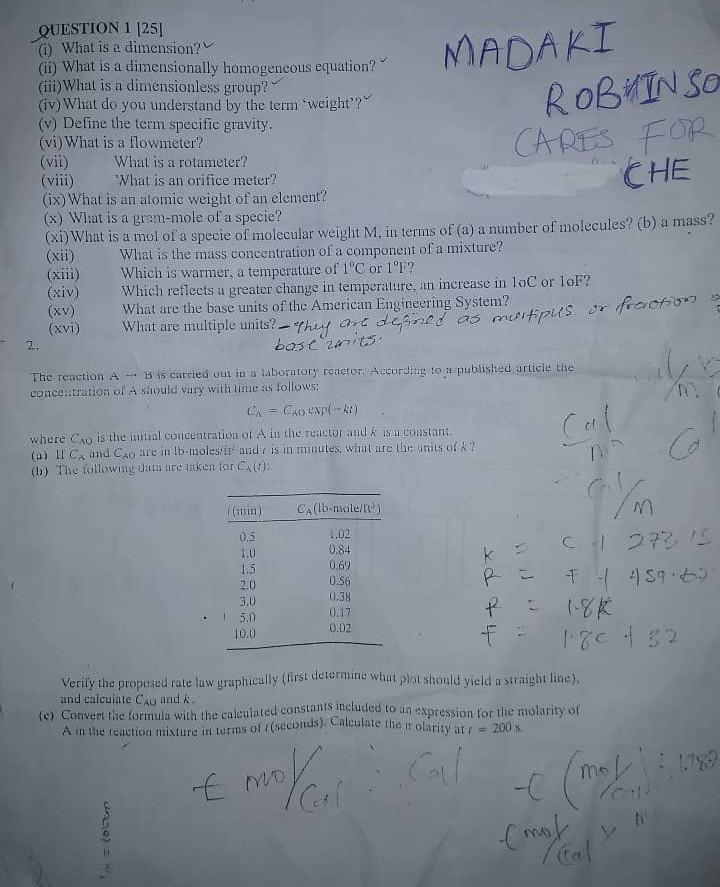 QUESTION 1 [25]
(i) What is a dimension?
(ii) What is a dimensionally homogeneous equation?
(iii) What is a dimensionless group?
(iv) What do you understand by the term 'weight'?
(v) Define the term specific gravity.
(vi) What is a flowmeter?
(vii) What is a rotameter?
(viii) What is an orifice meter?
(ix) What is an atomic weight of an element?
(x) What is a gram-mole of a specie?
(xi) What is a mol of a specie of molecular weight M, in terms of (a) a number of molecules? (b) a mass?
(xii) What is the mass concentration of a component of a mixture?
(xiii) Which is warmer, a temperature of 1°C or 1°F?
(xiv) Which reflects a greater change in temperature, an increase in 1oC or 1oF?
(xv) What are the base units of the American Engineering System?
(xvi) What are multiple units? - They are defined as multiples or fraction
base units.
MADAKI
ROBINSO
CARES FOR
CHE
2.
The reaction A → B is carried out in a laboratory reactor. According to a published article the
concentration of A should vary with time as follows:
CA = CAO exp(-kt)
where CAO is the initial concentration of A in the reactor and k is a constant.
(a) If CA and CAO are in lb-moles/ft³ and t is in minutes, what are the units of k?
(b) The following data are taken for CA(t):
t(min) CA(lb-mole/ft³)
0.5 1.02
1.0 0.84
1.5 0.69
2.0 0.56
3.0 0.38
5.0 0.17
10.0 0.02
Cal
Cal/m
K = C + 273.15
R = F + 459.67
R = 1.8K
F = 1.8C + 32
Verify the proposed rate law graphically (first determine what plot should yield a straight line),
and calculate CAO and k.
(c) Convert the formula with the calculated constants included to an expression for the molarity of
A in the reaction mixture in terms of t(seconds). Calculate the molarity at t = 200 s.
t mol/Cal : Cal
1m = 100cm